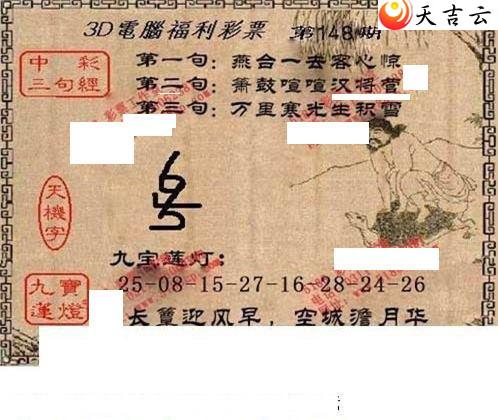 天吉云
3D電腦福利彩票 第148期
中彩
三句經
第一句：燕台一去客心惊
第二句：箫鼓喧喧汉将营
第三句：万里寒光生积雪
天機字
九宝莲灯：
九寶
蓮燈
25-08-15-27-16-28-24-26
长簟迎风早，空城澹月华